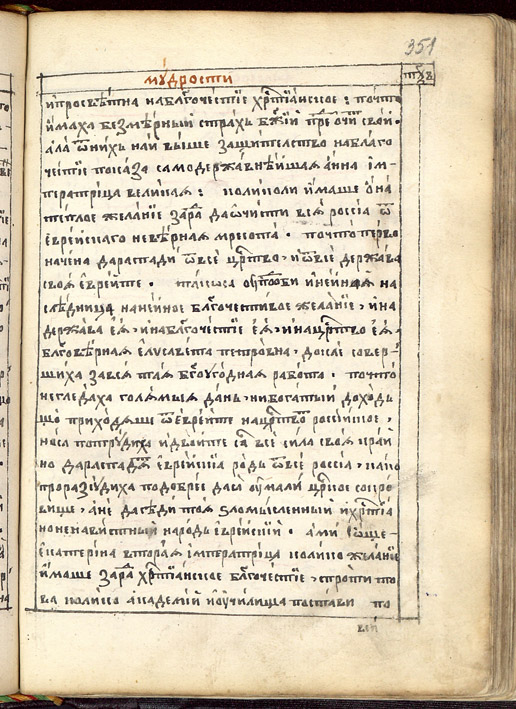 351
мꙋдрости
тн҃в
и҆просвѣтиа наблг҃очестїе хрⷭ҇тїанское: почто
и҆маха безмѣрныи страхъ бж҃їй прⷣе ѻ҆чїи свои.
ала ѿнихъ наи выше защителство наблаго
честїе показа самодержавнѣишая анна їм-
ператрїца великая: коликоли и҆маше ѻ҆на
теплое желанїе зара́ да ѡ҆чисти вся росиа ѿ
еѵрейскаго невѣрная мерсота. почто перво
начена дараспади ѿвсе црⷭ҇тво, и҆ ѿвсе держава
своя еѵреите. такоса ᲂу҆потреби и҆неиная на
слѣдница нанеиное блг҃очестивое желанїе, и҆на
держава еѧ, и҆наблг҃очестїе еѧ, и҆нацрⷭ҇тво еѧ
блг҃овѣрная елисавета петровна, докле совер-
шиха зався тая бг҃оугодная работа. почто
негледаха голямыя дань, нибогатый доходъ
що приходяше ѿ еѵреите нацрⷭ҇тво россииское,
носа потрꙋдиха и҆двоите са все сила своя край
но дараспадⷣа еѵрейскїа родъ ѿвсе россиа, како
проразсꙋдиха подобрее даса ᲂу҆мали црⷭ҇кое сокро
вище, а҆не даседи тоя зломысленный и҆хрⷭ҇тїа
ноненавистный народъ еѵрейскїй. ами і҆ѻ҆ще
екатерїна вторая їмператрїца колико желанїе
и҆маше зара́ хрⷭ҇тїанское блг҃очестїе, спроти то
ва колико академїй и҆ᲂу҆чилища постави по
всй